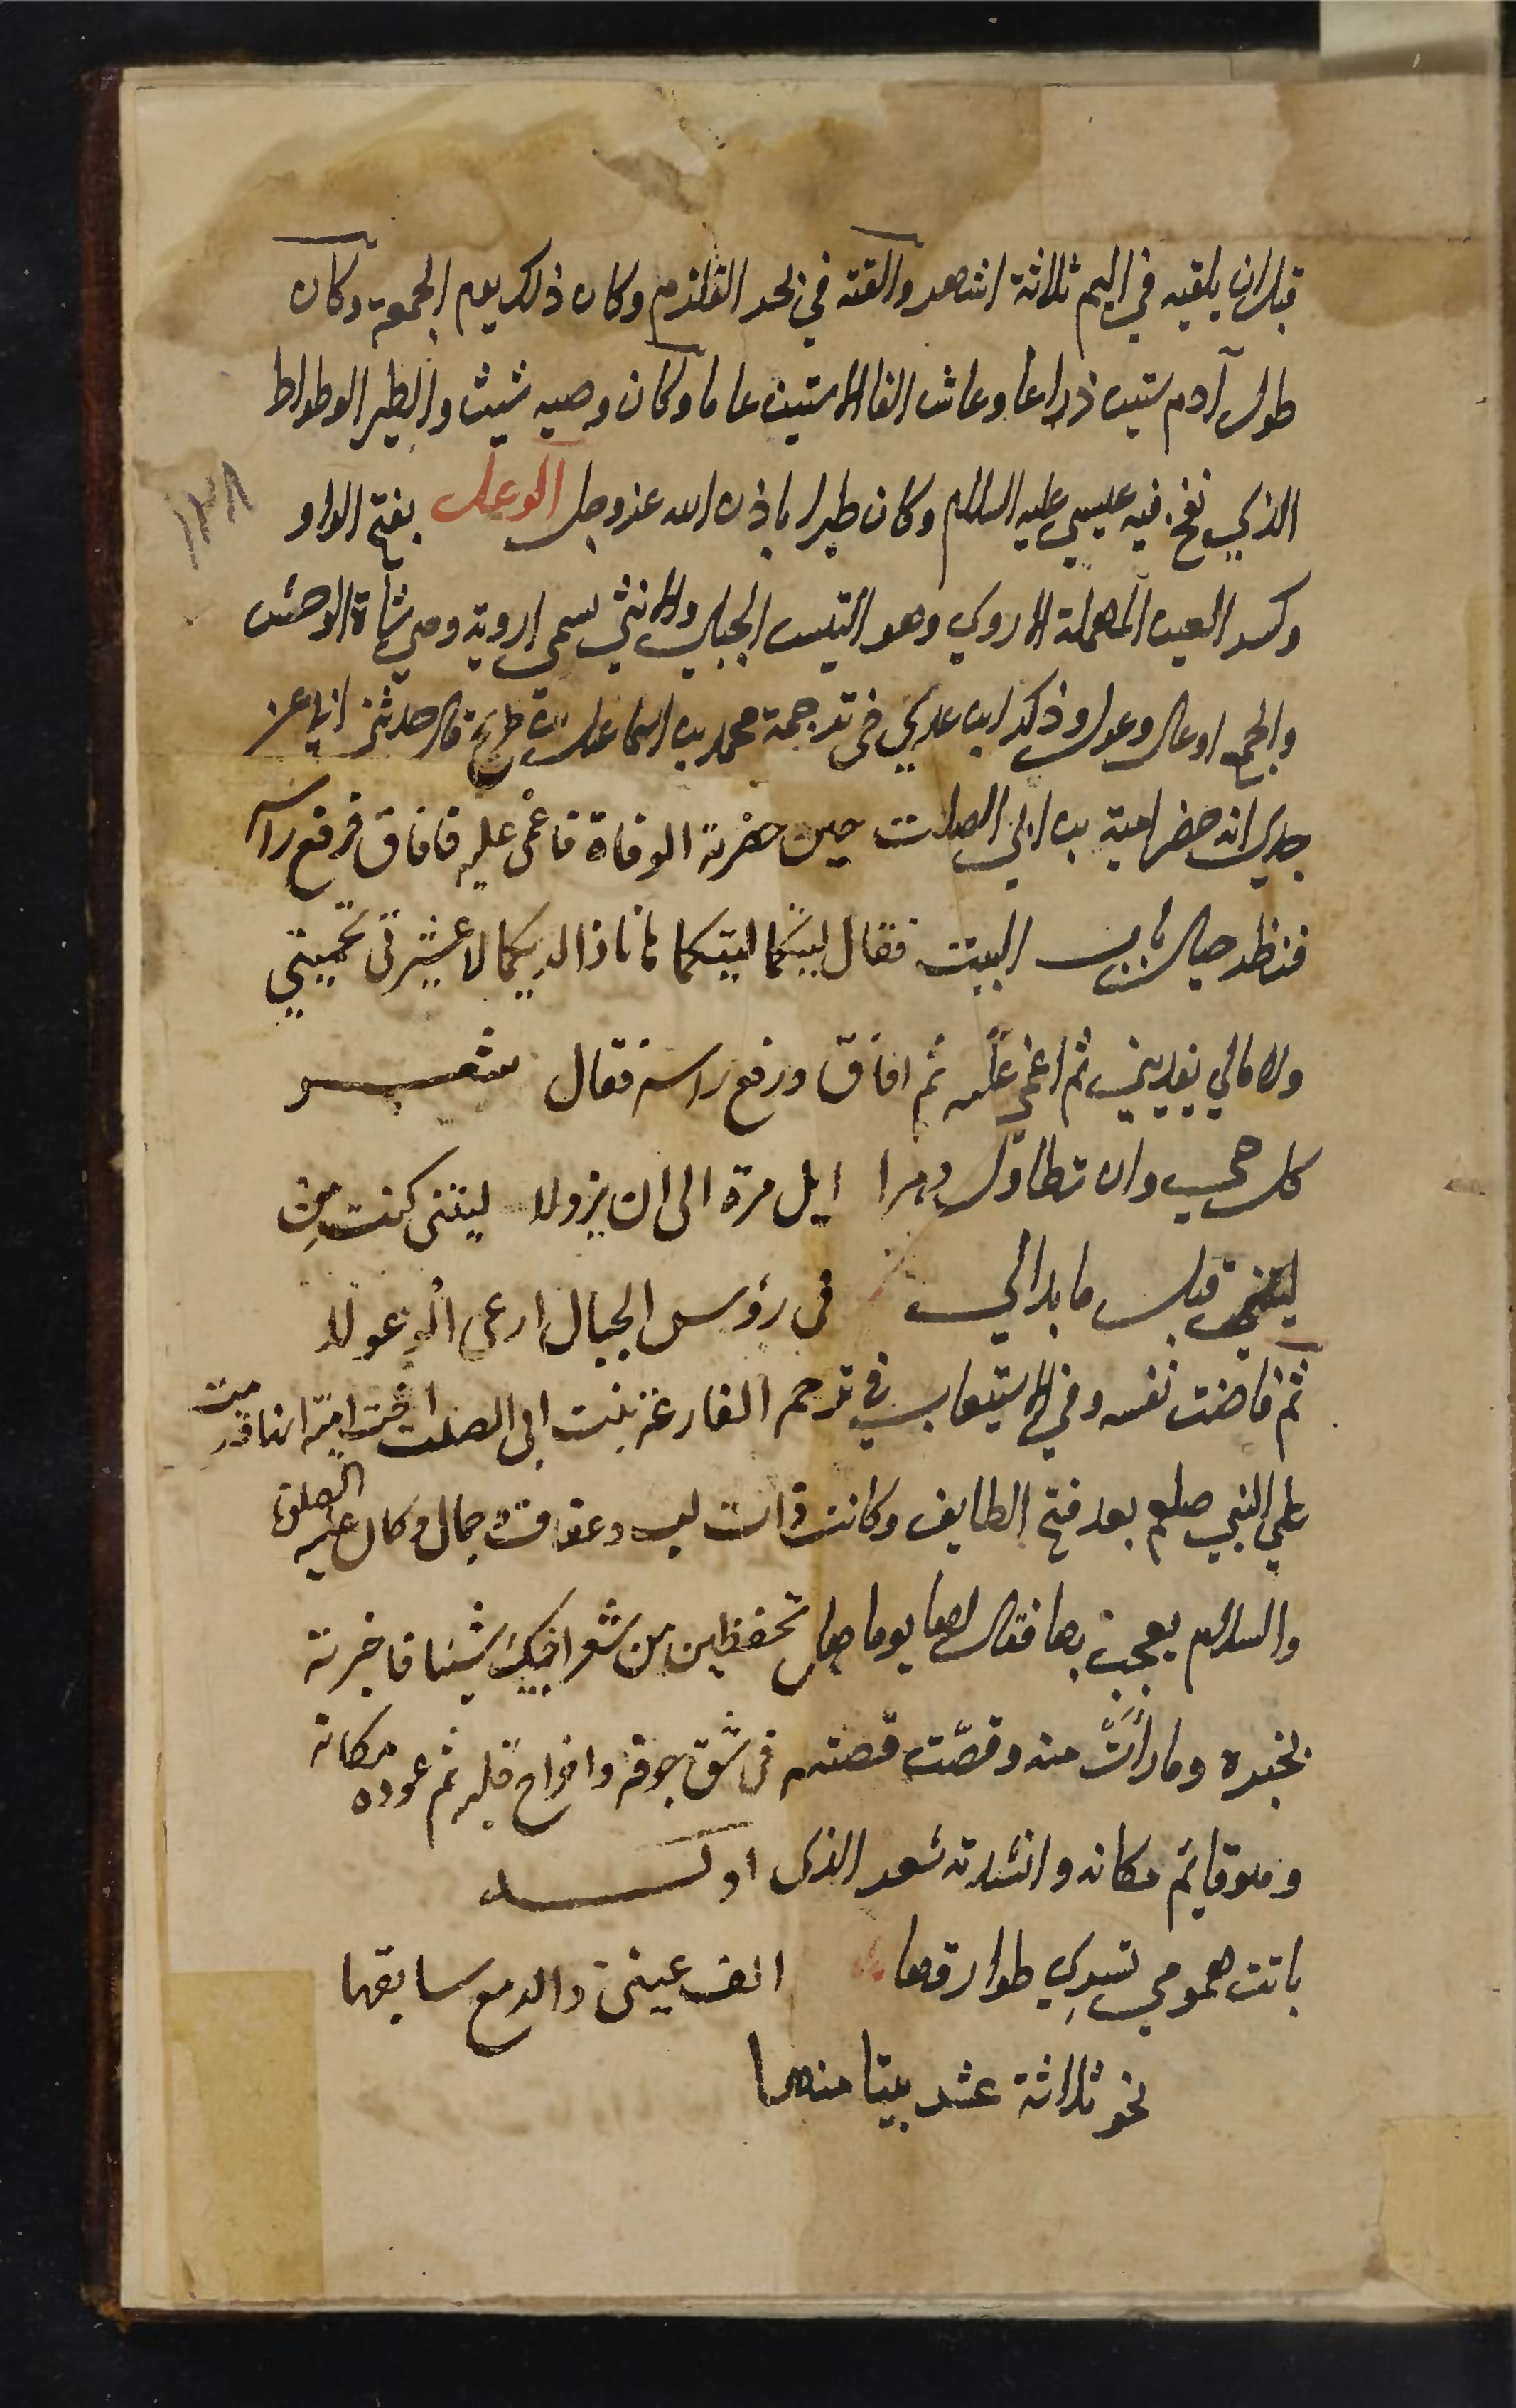 قبل ان يلقيه في اليم ثلاثة اشهر والقته في بحر القلزم وكان ذلك يوم الجمعة وكان
طول آدم ستين ذراعا وعاش الفا الا ستين عاما وكان وصيه شيث والطير الوطواط
الذي نفخ فيه عيسي عليه السلام وكان طيرا باذن الله عز وجل الوعل بفتح الواو
وكسر العين المهملة الاروي وهو التيس الجبلي والانثي تسمى اروية وهي شاة الوحش
والجمع اوعال ووعول وذكر ابن عدي في ترجمة محمد بن اسماعيل بن طريح قال حدثني ابي عن
جدي انه حضر امية بن ابي الصلت حين حضرته الوفاة فاغمى عليه فافاق فرفع راسه
فنظر حيال باب البيت فقال لبيكما لبيكما ها نا ذا لديكما لا عشيرتى تحميني
ولا مالي يفديني ثم اغمى عليه ثم افاق ورفع راسه فقال شعر
كل حي وان تطاول دهرا ايل مرة الى ان يزولا ليتنى كنت
ليتني كنت قبل ما بدا لي في رؤس الجبال ارعى الوعولا
ثم فاضت نفسه وفي الاستيعاب في ترجم الفارعة بنت ابى الصلت اخت امية انها قدمت
على النبي صلعم بعد فتح الطايف وكانت ذات لب وعفاف وجمال وكان عليه الصلوة
والسلام يعجب بها فقال لها يوما هل تحفظين من شعر اخيك شيئا فاخبرته
بخبره وما رأت منه وقصّت قصته في شق جوفه واخراج قلبه ثم عوده مكانه
وهو قايم مكانه وانشدته شعر الذى اوله
باتت همومي تسري طوارقها اكف عينى والدمع سابقها
نحو ثلاثة عشر بيتا منها